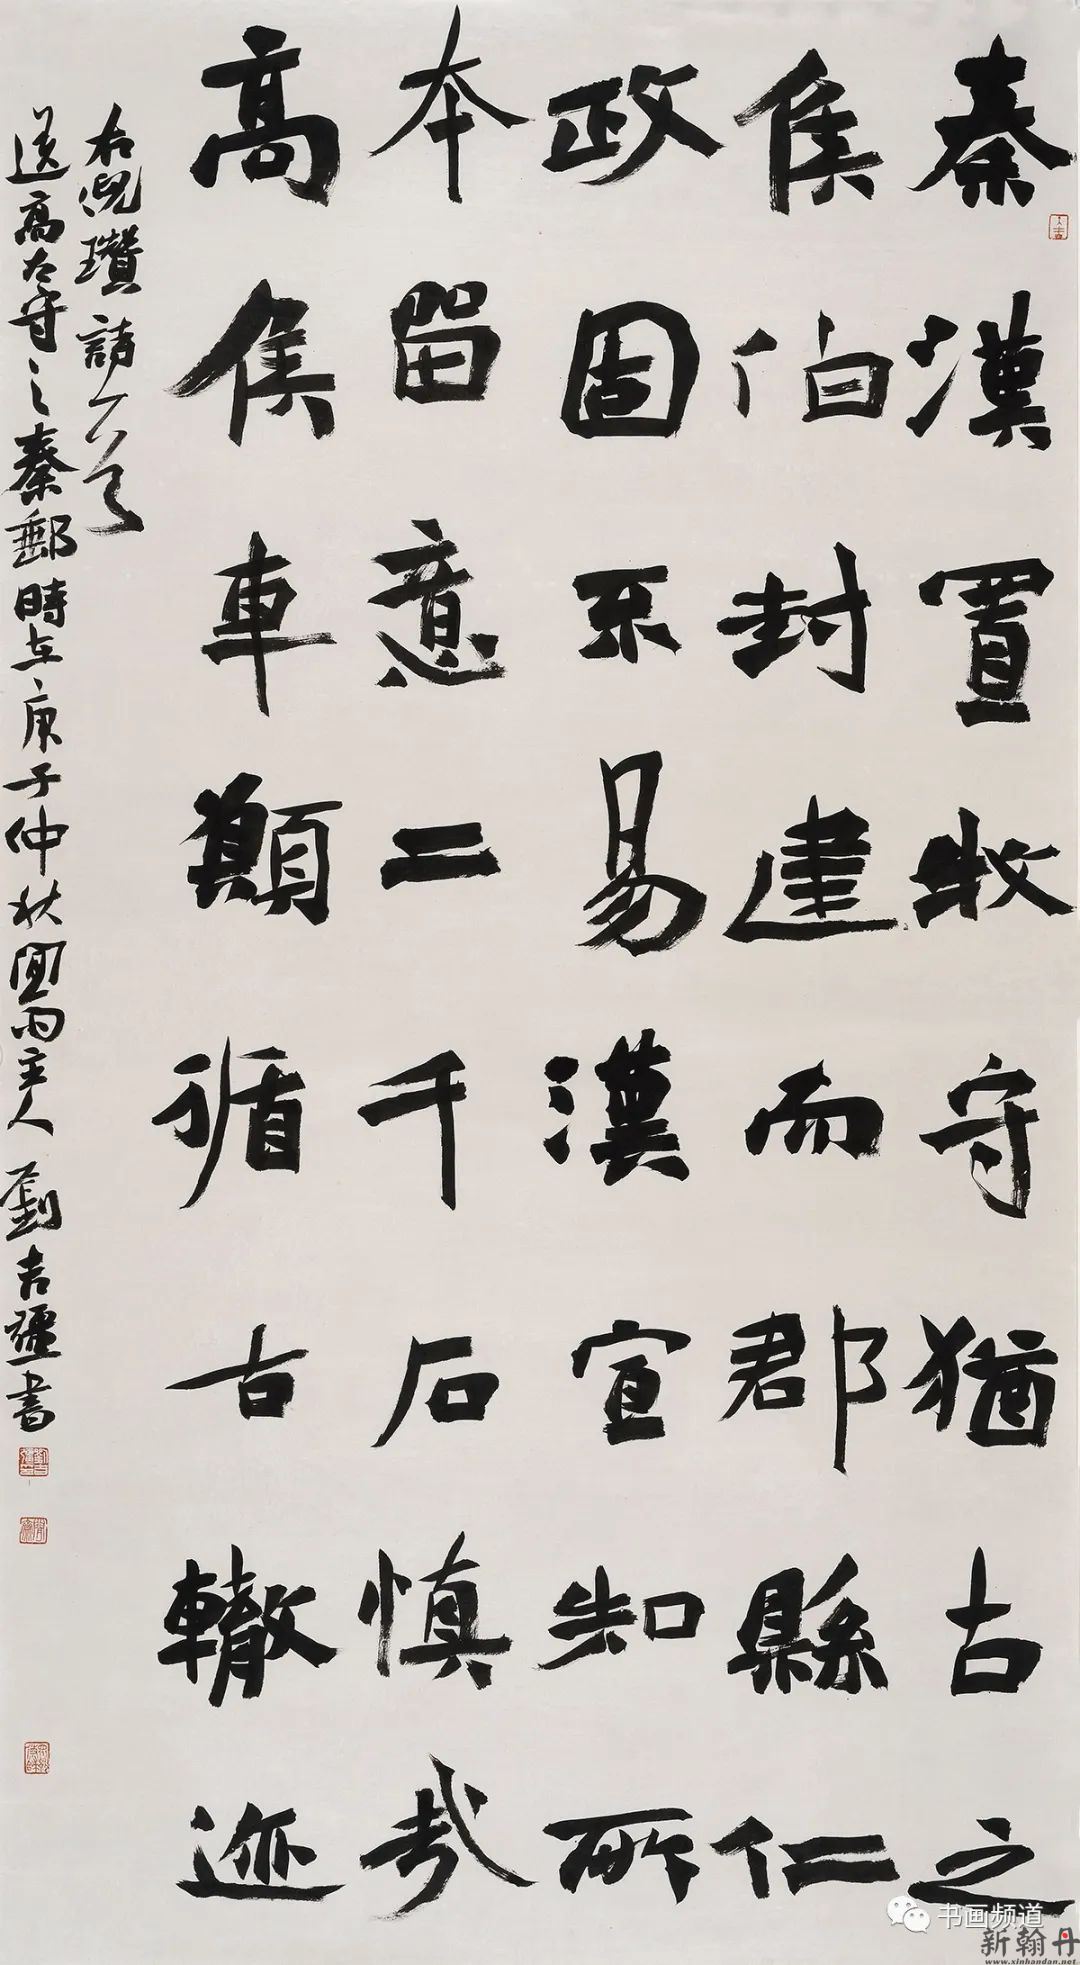 秦漢置牧守猶古之
侯伯封建而郡縣仁
政固不易漢宣知所
本留意二千石慎哉
高侯車顛循古轍迹
右倪瓚詩一首
送高太守之秦郵時在庚子仲秋聞雨主人劉吉疆書
书画频道
新翰丹
www.xinhandan.net